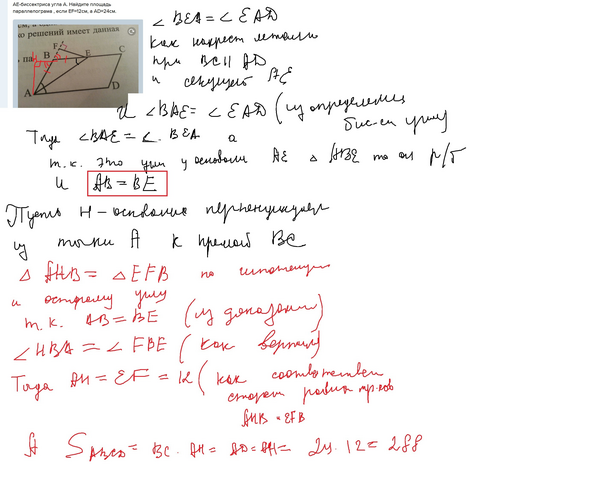 АЕ-биссектриса угла А. Найдите площадь
параллелограмма , если EF=12см, а AD=24см.
ю решений имеет данная
F
B
E
C
A
D
∠ BEA = ∠ EAD
как накрест лежащие
при BC || AD
и секущей AE
и ∠ BAE = ∠ EAD ( из определения
бис-сы угла)
Тогда ∠BAE = ∠ BEA а
т.к. это углы у основания AE △ ABE то он р/б
и AB = BE
Пусть H – основание перпендикуляра
из точки A к прямой BC
△ AHB = △ EFB по гипотенузе
и острому углу
т.к. AB = BE (из доказан)
∠HBA = ∠ FBE ( как вертик)
Тогда AH = EF = 12 ( как соответствен
сторон равных тр-ков
AHB = EFB
А S ABCD = BC · AH = AD · AH = 24 · 12 = 288